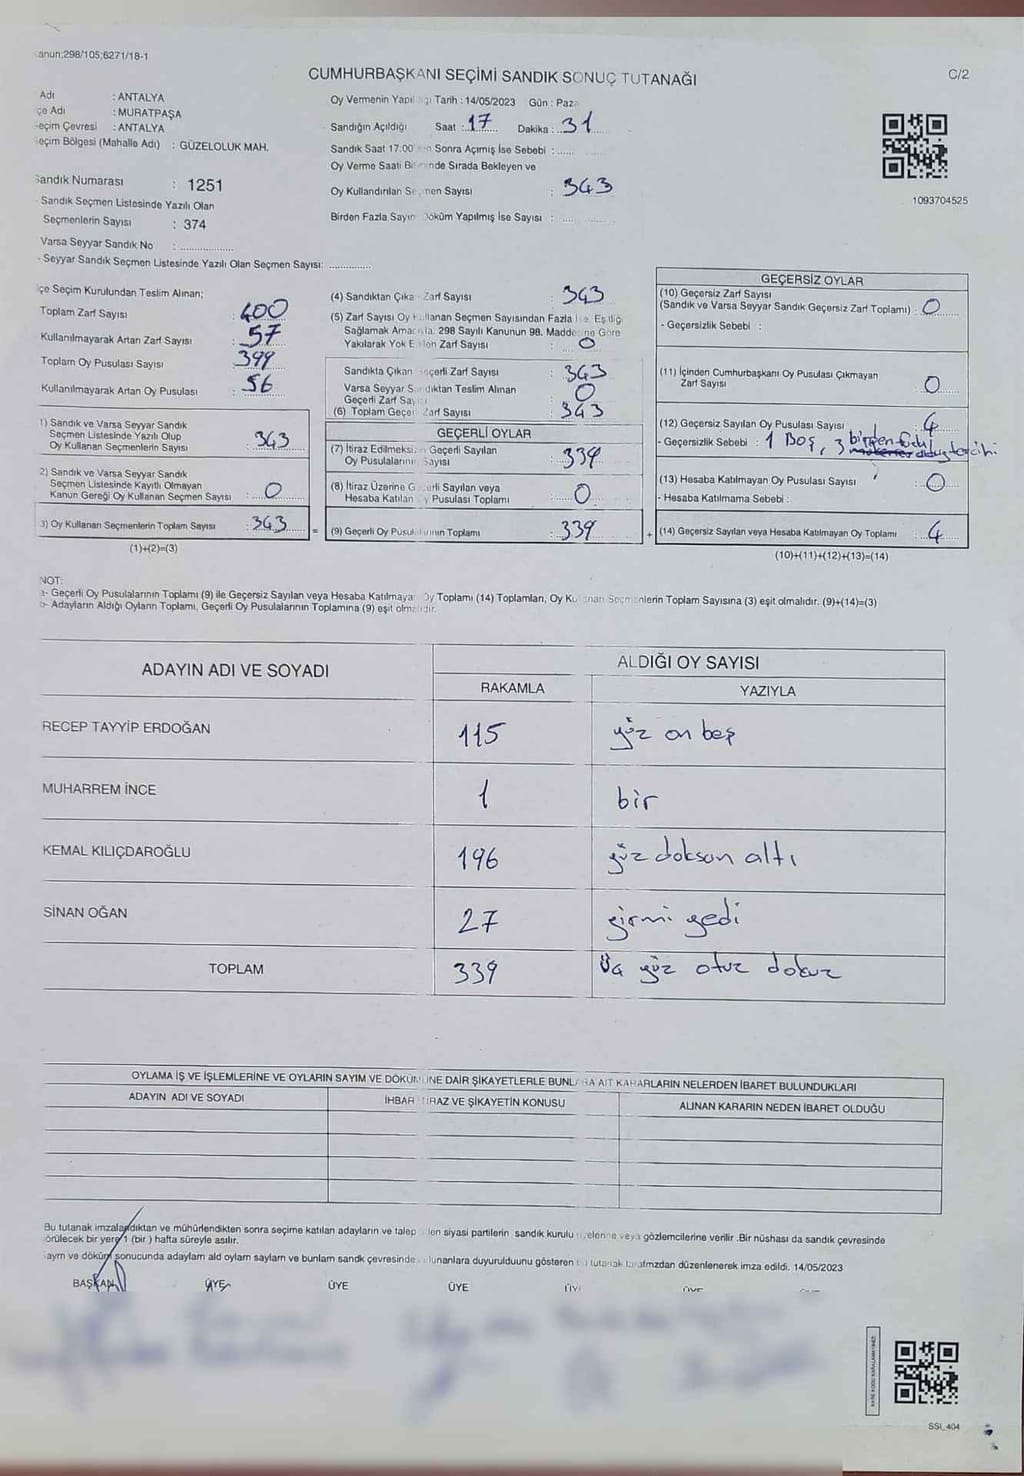 anun;298/105;6271/18-1
CUMHURBAŞKANI SEÇİMİ SANDIK SONUÇ TUTANAĞI
C/2
Adı : ANTALYA
çe Adı : MURATPAŞA
eçim Çevresi : ANTALYA
eçim Bölgesi (Mahalle Adı) : GÜZELOLUK MAH.
Sandık Numarası : 1251
Sandık Seçmen Listesinde Yazılı Olan
Seçmenlerin Sayısı : 374
Varsa Seyyar Sandık No : ..................
- Seyyar Sandık Seçmen Listesinde Yazılı Olan Seçmen Sayısı: ..............
Oy Vermenin Yapıl ğı Tarih : 14/05/2023 Gün : Paza
Sandığın Açıldığı Saat : 17 Dakika : 31
Sandık Saat 17:00 en Sonra Açımış İse Sebebi : ......
Oy Verme Saati Bi minde Sırada Bekleyen ve
Oy Kullandırılan Seçmen Sayısı : 343
Birden Fazla Sayım Döküm Yapılmış İse Sayısı : ....
1093704525
çe Seçim Kurulundan Teslim Alınan;
Toplam Zarf Sayısı : 400
Kullanılmayarak Artan Zarf Sayısı : 57
Toplam Oy Pusulası Sayısı : 399
Kullanılmayarak Artan Oy Pusulası : 56
1) Sandık ve Varsa Seyyar Sandık
Seçmen Listesinde Yazılı Olup
Oy Kullanan Seçmenlerin Sayısı : 343
2) Sandık ve Varsa Seyyar Sandık
Seçmen Listesinde Kayıtlı Olmayan
Kanun Gereği Oy Kullanan Seçmen Sayısı : 0
3) Oy Kullanan Seçmenlerin Toplam Sayısı : 343
(1)+(2)=(3)
(4) Sandıktan Çıkan Zarf Sayısı : 343
(5) Zarf Sayısı Oy Kullanan Seçmen Sayısından Fazla İse, Eşitliği
Sağlamak Amacıyla: 298 Sayılı Kanunun 98. Maddesine Göre
Yakılarak Yok Edilen Zarf Sayısı : 0
Sandıkta Çıkan eçerli Zarf Sayısı : 343
Varsa Seyyar Sandıktan Teslim Alınan
Geçerli Zarf Sayısı : 0
(6) Toplam Geçer Zarf Sayısı : 343
GEÇERLİ OYLAR
(7) İtiraz Edilmeksizin Geçerli Sayılan
Oy Pusulalarının Sayısı : 339
(8) İtiraz Üzerine Geçerli Sayılan veya
Hesaba Katılan Oy Pusulası Toplamı : 0
= (9) Geçerli Oy Pusulalarının Toplamı : 339
GEÇERSİZ OYLAR
(10) Geçersiz Zarf Sayısı
(Sandık ve Varsa Seyyar Sandık Geçersiz Zarf Toplamı) : 0
- Geçersizlik Sebebi :
(11) İçinden Cumhurbaşkanı Oy Pusulası Çıkmayan
Zarf Sayısı : 0
(12) Geçersiz Sayılan Oy Pusulası Sayısı : 4
- Geçersizlik Sebebi : 1 Boş, 3 birden
(13) Hesaba Katılmayan Oy Pusulası Sayısı : 0
- Hesaba Katılmama Sebebi :
+ (14) Geçersiz Sayılan veya Hesaba Katılmayan Oy Toplamı : 4
(10)+(11)+(12)+(13)=(14)
NOT:
a- Geçerli Oy Pusulalarının Toplamı (9) ile Geçersiz Sayılan veya Hesaba Katılmayan Oy Toplamı (14) Toplamları, Oy Kullanan Seçmenlerin Toplam Sayısına (3) eşit olmalıdır. (9)+(14)=(3)
b- Adayların Aldığı Oyların Toplamı, Geçerli Oy Pusulalarının Toplamına (9) eşit olmalıdır.
ADAYIN ADI VE SOYADI
ALDIĞI OY SAYISI
RAKAMLA YAZIYLA
RECEP TAYYİP ERDOĞAN 115 yüz on beş
MUHARREM İNCE 1 bir
KEMAL KILIÇDAROĞLU 196 yüz doksan altı
SİNAN OĞAN 27 yirmi yedi
TOPLAM 339 Üç yüz otuz dokuz
OYLAMA İŞ VE İŞLEMLERİNE VE OYLARIN SAYIM VE DÖKÜMÜNE DAİR ŞİKAYETLERLE BUNLARA AİT KARARLARIN NELERDEN İBARET BULUNDUKLARI
ADAYIN ADI VE SOYADI
İHBAR İTİRAZ VE ŞİKAYETİN KONUSU
ALINAN KARARIN NEDEN İBARET OLDUĞU
Bu tutanak imzalandıktan ve mühürlendikten sonra seçime katılan adayların ve talep eden siyasi partilerin sandık kurulu üyelerine veya gözlemcilerine verilir .Bir nüshası da sandık çevresinde
örülecek bir yere 1 (bir ) hafta süreyle asılır.
aym ve döküm sonucunda adaylam ald oylam saylam ve bunlam sandk çevresinde bulunanlara duyurulduunu gösteren bu tutanak tarafmzdan düzenlenerek imza edildi. 14/05/2023
BAŞKAN ÜYE ÜYE ÜYE
KARE KODU KARALAMAYINIZ!
SSI_404